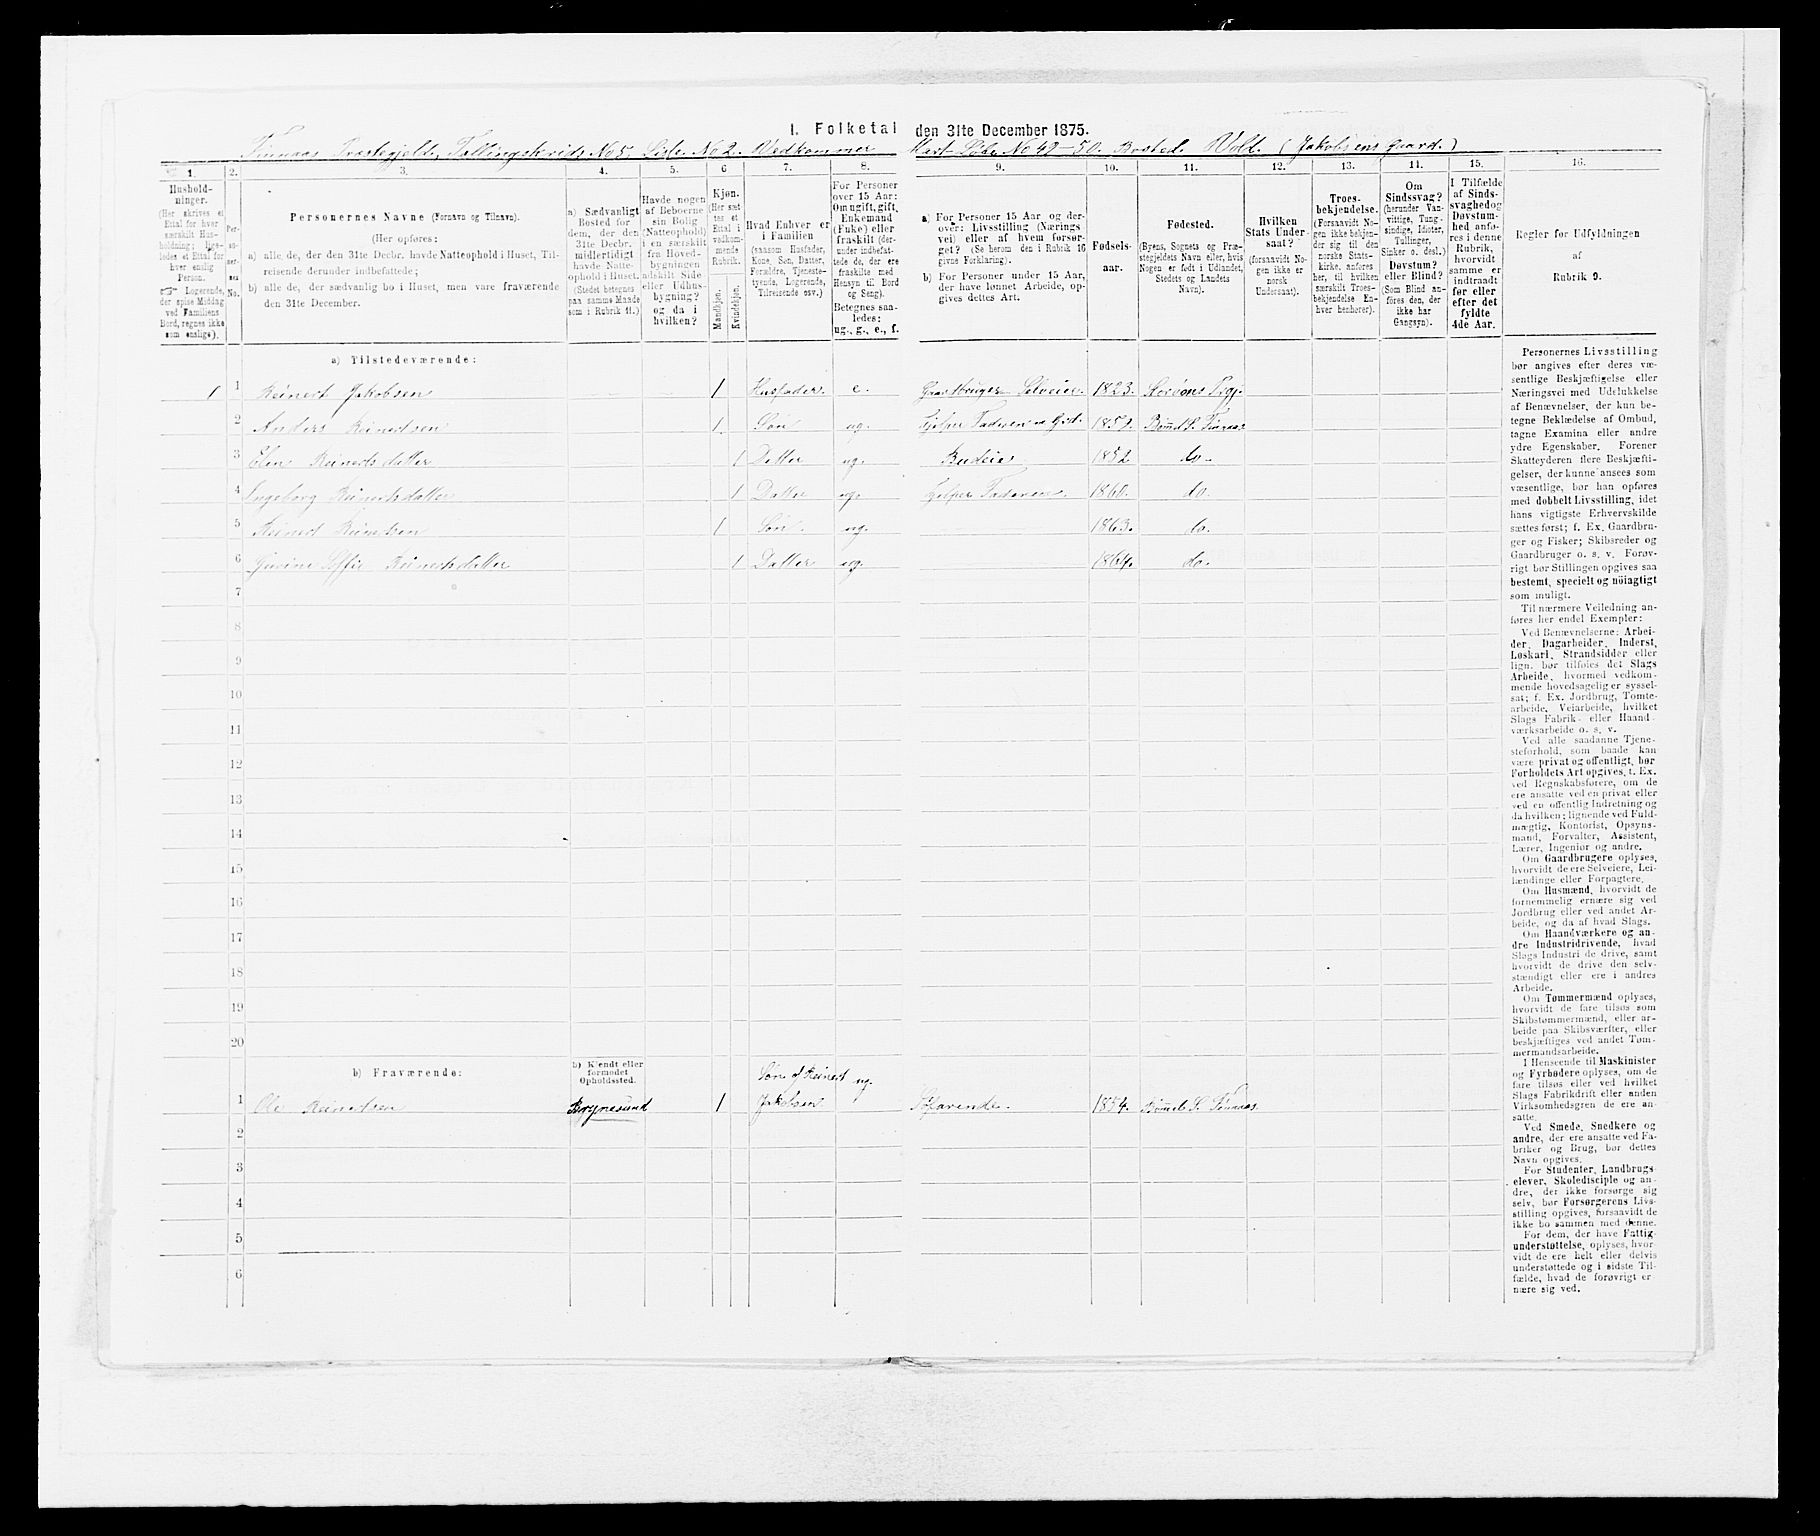 I. Folketal den 31te December 1875.
Finnaas Præstegjeld, Tællingskreds No 5. Liste No 2. Vedkommer Matr. Løbe No 49-50. Bosted Vold. (Jakobsens Gaard.)
1. 2. 3. 4. 5. 6 7. 8. 9. 10. 11. 12. 13. 11. 15. 16.
Hushold-
ninger.
(Her skrives et
Ettal for hver
særskilt Hus-
holdning; lige-
ledes et Ettal for
hver enslig
Person.
Logerende,
der spise Middag
ved Familiens
Bord, regnes ikke
som enslige).
Per-
so-
ner-
nes
No.
Personernes Navne (Fornavn og Tilnavn).
(Her opføres:
a) alle de, der den 31te Decbr. havde Natteophold i Huset, Til-
reisende derunder indbefattede;
b) alle de, der sædvanlig bo i Huset, men vare fraværende
den 31te December.
a) Sædvanligt
Bosted for
dem, der den
31te Decbr.
midlertidigt
havde Natte-
ophold i Huset.
(Stedet betegnes
paa samme Maade
som i Rubrik 11.)
Havde nogen
af Beboerne
sin Bolig
(Natteophold)
i en særskilt
fra Hoved-
bygningen
adskilt Side
eller Udhus-
bygning?
og da i
hvilken?
Kjøn.
(Her sæt
tes et
Ettal i
vedkom-
mende
Rubrik.
Mandkjøn.
Kvindekjøn.
Hvad Enhver er
i Familien
(saasom Husfader,
Kone, Søn, Datter,
Forældre, Tjeneste-
tyende, Logerende,
Tilreisende osv.)
For Personer
over 15 Aar:
Om ugift, gift,
Enkemand
(Fuke) eller
fraskilt (der-
under indbefat-
tede de, der ere
fraskilte med
Hensyn til Bord
og Seng).
Betegnes saa-
ledes:
ug., g., e., f.
a) For Personer 15 Aar og der-
over: Livsstilling (Nærings
vei) eller af hvem forsør-
get? (Se herom den i Rubrik 16
givne Forklaring).
b) For Personer under 15 Aar,
der have lønnet Arbeide, op-
gives dettes Art.
Fødsels-
aar.
Fødested.
(Byens, Sognets og Præ-
stegjeldets Navn eller, hvis
Nogen er født i Udlandet,
Stedets og Landets
Navn).
Hvilken
Stats Under-
saat?
(forsaavidt No-
gen ikke er
norsk
Undersaat).
Troes-
bekjendelse.
(Forsaavidt No-
gen ikke bekjen-
der sig til den
norske Stats-
kirke, anføres
her, til hvilken
særskilt Troes-
bekjendelse En-
hver henhører).
Om
Sindssvag?
(herunder Van-
vittige, Tung-
sindige, Idioter,
Tullinger,
Sinker o. desl.).
Døvstum?
eller Blind?
(Som Blind an-
føres den, der
ikke har
Gangsyn).
I Tilfælde
af Sinds-
svaghed og
Døvstum-
hed anfø-
res i denne
Rubrik,
hvorvidt
samme er
indtraadt
før eller
efter det
fyldte
4de Aar.
Regler før Udfyldningen
af
Rubrik 9.
a) Tilstedeværende:
1 1 Reinert Jakobsen 1 Husfader e. Gaardbruger Selveier 1823. Storøens Prgj.
2 Anders Reinertsen 1 Søn ug. Hjelper Faderen 1852. Bømmel S. Finnaas
3 Elen Reinertsdatter 1 Datter ug. Budeie 1852 do.
4 Ingeborg Reinertsdatter 1 Datter ug. Hjelper Faderen. 1860. do.
5 Reinert Reinertsen 1 Søn ug. 1863. do.
6 Gurine Soffie Reinertsdatter 1 Datter ug. 1864. do.
7
8
9
10
11
12
13
14
15
16
17
18
19
20
b) Fraværende:
b) Kjendt eller
formodet
Opholdssted.
1 Ole Reinertsen Brynesund 1 Søn af Reinert Jakobsen ug. Søfarende. 1854. Bømmel S. Finnaas.
2
3
4
5
6
Personernes Livsstilling
bør angives efter deres væ-
sentlige Beskjæftigelse eller
Næringsvei med Udelukkelse
af Benævnelser, der kun be-
tegne Beklædelse af Ombud,
tagne Examina eller andre
ydre Egenskaber. Forener
Skatteyderen flere Beskjæfti-
gelser, der kunne ansees som
væsentlige, bør han opføres
med dobbelt Livsstilling, idet
hans vigtigste Erhvervskilde
sættes først; f. Ex. Gaardbru-
ger og Fisker; Skibsreder og
Gaardbruger o. s. v. Forøv-
rigt bør Stillingen opgives saa
bestemt, specielt og nöiagtigt
som muligt.
Til nærmere Veiledning an-
føres her endel Exempler:
Ved Benævnelserne: Arbei-
der, Dagarbeider, Inderst,
Løskarl, Strandsidder eller
lign. bør tilføies det Slags
Arbeide, hvormed vedkom-
mende hovedsagelig er syssel-
sat; f. Ex. Jordbrug, Tomte-
arbeide, Veiarbeide, hvilket
Slags Fabrik- eller Haand-
værksarbeide o. s. v.
Ved alle saadanne Tjene-
steforhold, som baade kan
være privat og offentligt, bør
Forholdets Art opgives, t. Ex.
ved Regnskabsførere, om de
ere ansatte ved en privat eller
ved en offentlig Indretning og
da hvilken; lignende ved Fuld-
mægtig, Kontorist, Opsyns-
mand, Forvalter, Assistent,
Lærer, Ingeniør og andre.
Om Gaardbrugere oplyses,
hvorvidt de ere Selveiere, Lei-
lændinge eller Forpagtere.
Om Husmænd, hvorvidt de
fornemmelig ernære sig ved
Jordbrug eller ved andet Ar-
beide, og da af hvad Slags.
Om Haandværkere og an-
dre Industridrivende, hvad
Slags Industri de drive, samt
hvorvidt de drive den selv-
stændigt eller ere i andres
Arbeide.
Om Tømmermænd oplyses,
hvorvidt de fare tilsøs som
Skibstømmermænd, eller ar-
beide paa Skibsværfter, eller
beskjæftiges ved andet Tøm-
mermandsarbeide.
I Henseende til Maskinister
og Fyrbødere oplyses, om de
fare tilsøs eller ved hvilket
Slags Fabrikdrift eller anden
Virksomhedsgren de ere an-
satte.
Ved Smede, Snedkere og
andre, der ere ansatte ved Fa-
briker og Brug, bør dettes
Navn opgives.
For Studenter, Landbrugs-
elever, Skoledisciple og an-
dre, der ikke forsørge sig
selv, bør Forsørgerens Livs-
stilling opgives, forsaavidt de
ikke bo sammen med denne.
For dem, der have Fattig-
understøttelse, oplyses, hvor-
vidt de ere helt eller delvis
understøttede og i sidste Til-
fælde, hvad de forøvrigt er
nære sig ved.